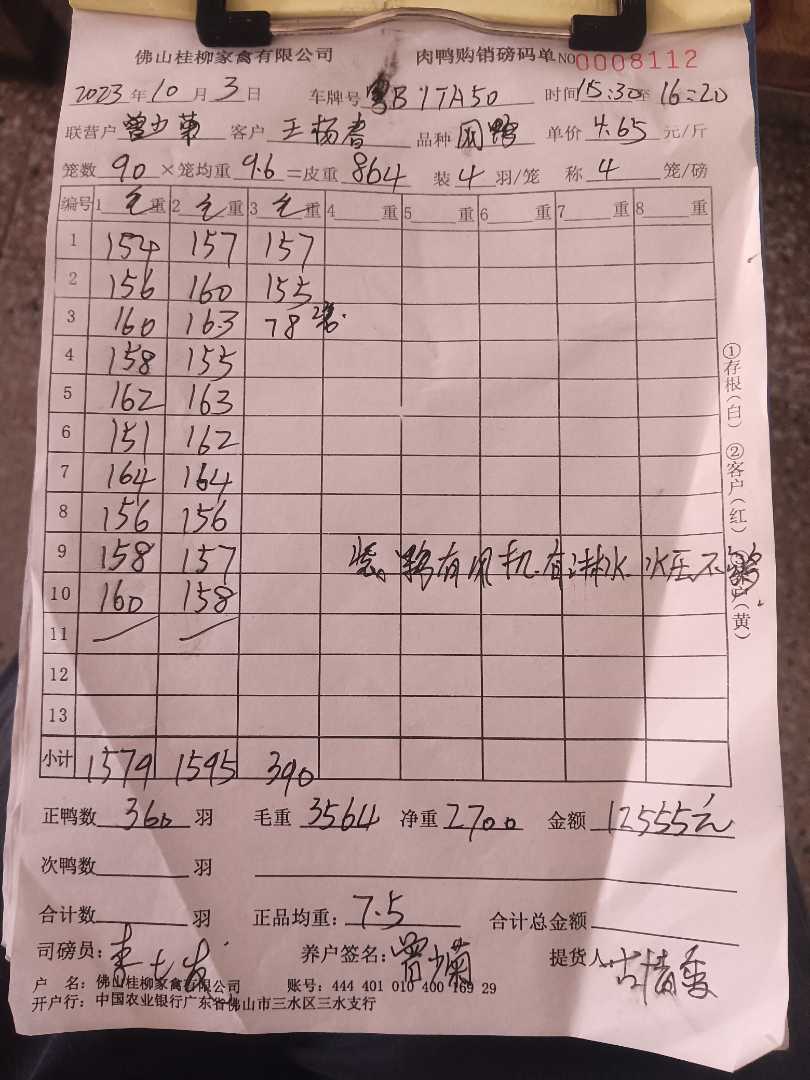 佛山桂柳家禽有限公司 肉鸭购销磅码单 NO 0008112
2023年10月3日 车牌号 粤B1TA50 时间15:30至16:20
联营户 曾少菊 客户 王杨春 品种 单价 4.65 元/斤
笼数 90 ×笼均重 9.6 =皮重 864 装 4 羽/笼 称 4 笼/磅
编号 1 毛 重 2 毛 重 3 毛 重 4 重 5 重 6 重 7 重 8 重
1 154 157 157
2 156 160 155
3 160 163 78 2笼.
4 158 155
5 162 163
6 151 162
7 164 164
8 156 156
9 158 157
10 160 158
有风机.有淋水.水压不
11
12
13
小计 1579 1595 390
①存根(白) ②客户(红) (黄)
正鸭数 360 羽 毛重 3564 净重 2700 金额 12555元
次鸭数 羽
合计数 羽 正品均重: 7.5 合计总金额
司磅员: 李 养户签名: 曾少菊 提货人:
户 名: 佛山桂柳家禽有限公司 账号: 444 401 010 400 169 29
开户行: 中国农业银行广东省佛山市三水区三水支行